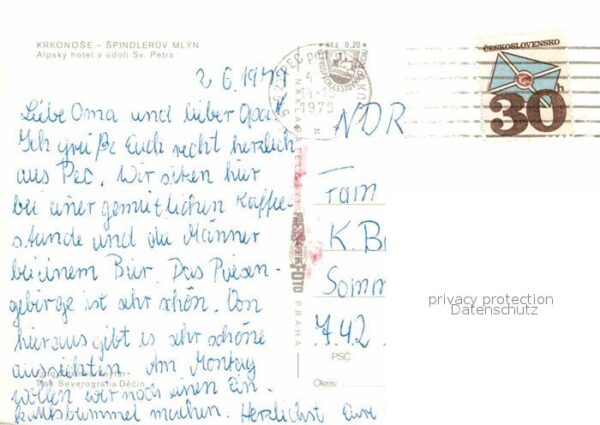 KRKONOŠE – ŠPINDLERŮV MLÝN
Alpský hotel v údolí Sv. Petra
2 6.1979
Liebe Oma und lieber Opa!
Ich grüße Euch recht herzlich
aus Pec. Wir sitzen hier
bei einer gemütlichen Kaffee-
stunde und die Männer
bei einem Bier. Das Riesen-
gebirge ist sehr schön. Von
hieraus gibt es sehr schöne
aussichten. Am Montag
wollen wir noch einen Ein-
kaufsbummel machen. Herzlichst Eure
Tisk Severografia Děčín
Kčs 0,20
PEC
1979
ČESKOSLOVENSKO
30h
NDR
Fam
K. B
Somm
742
PSČ
Okres:
FOTO
PRAHA
privacy protection
Datenschutz